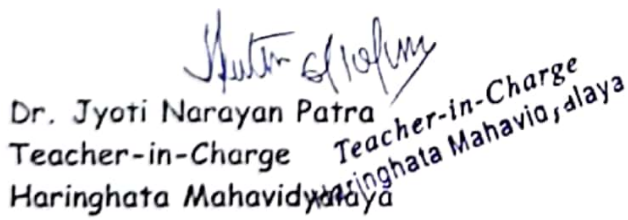 Dr. Jyoti Narayan Patra
Teacher-in-Charge
Haringhata Mahavidyalaya
Teacher-in-Charge
Haringhata Mahavidyalaya